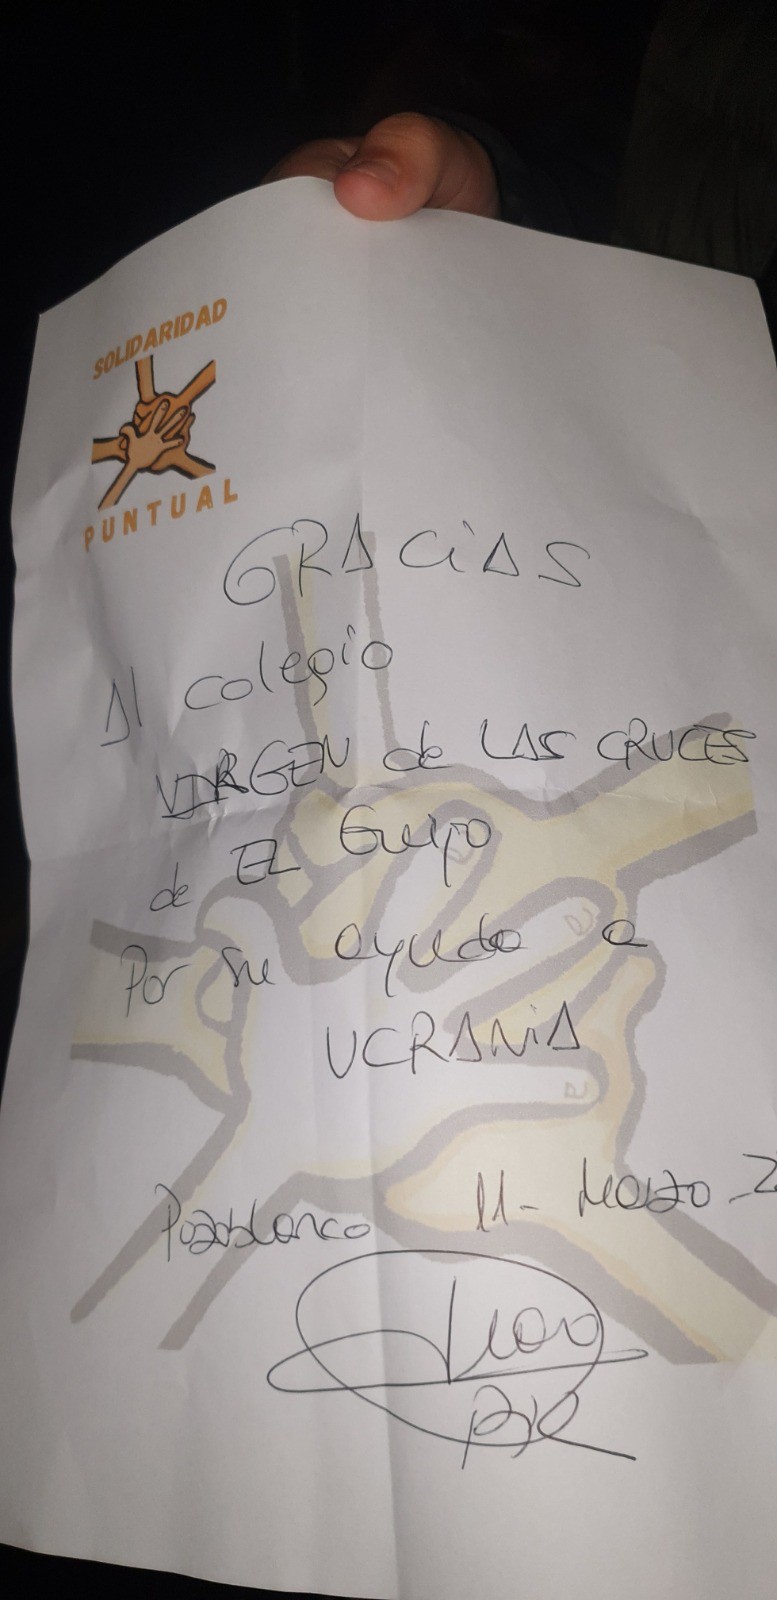 SOLIDARIDAD
PUNTUAL
GRACIAS
Al colegio
VIRGEN de LAS CRUCES
de EL Guijo
Por su ayuda a
UCRANIA
Pozoblanco 11- Marzo - 2